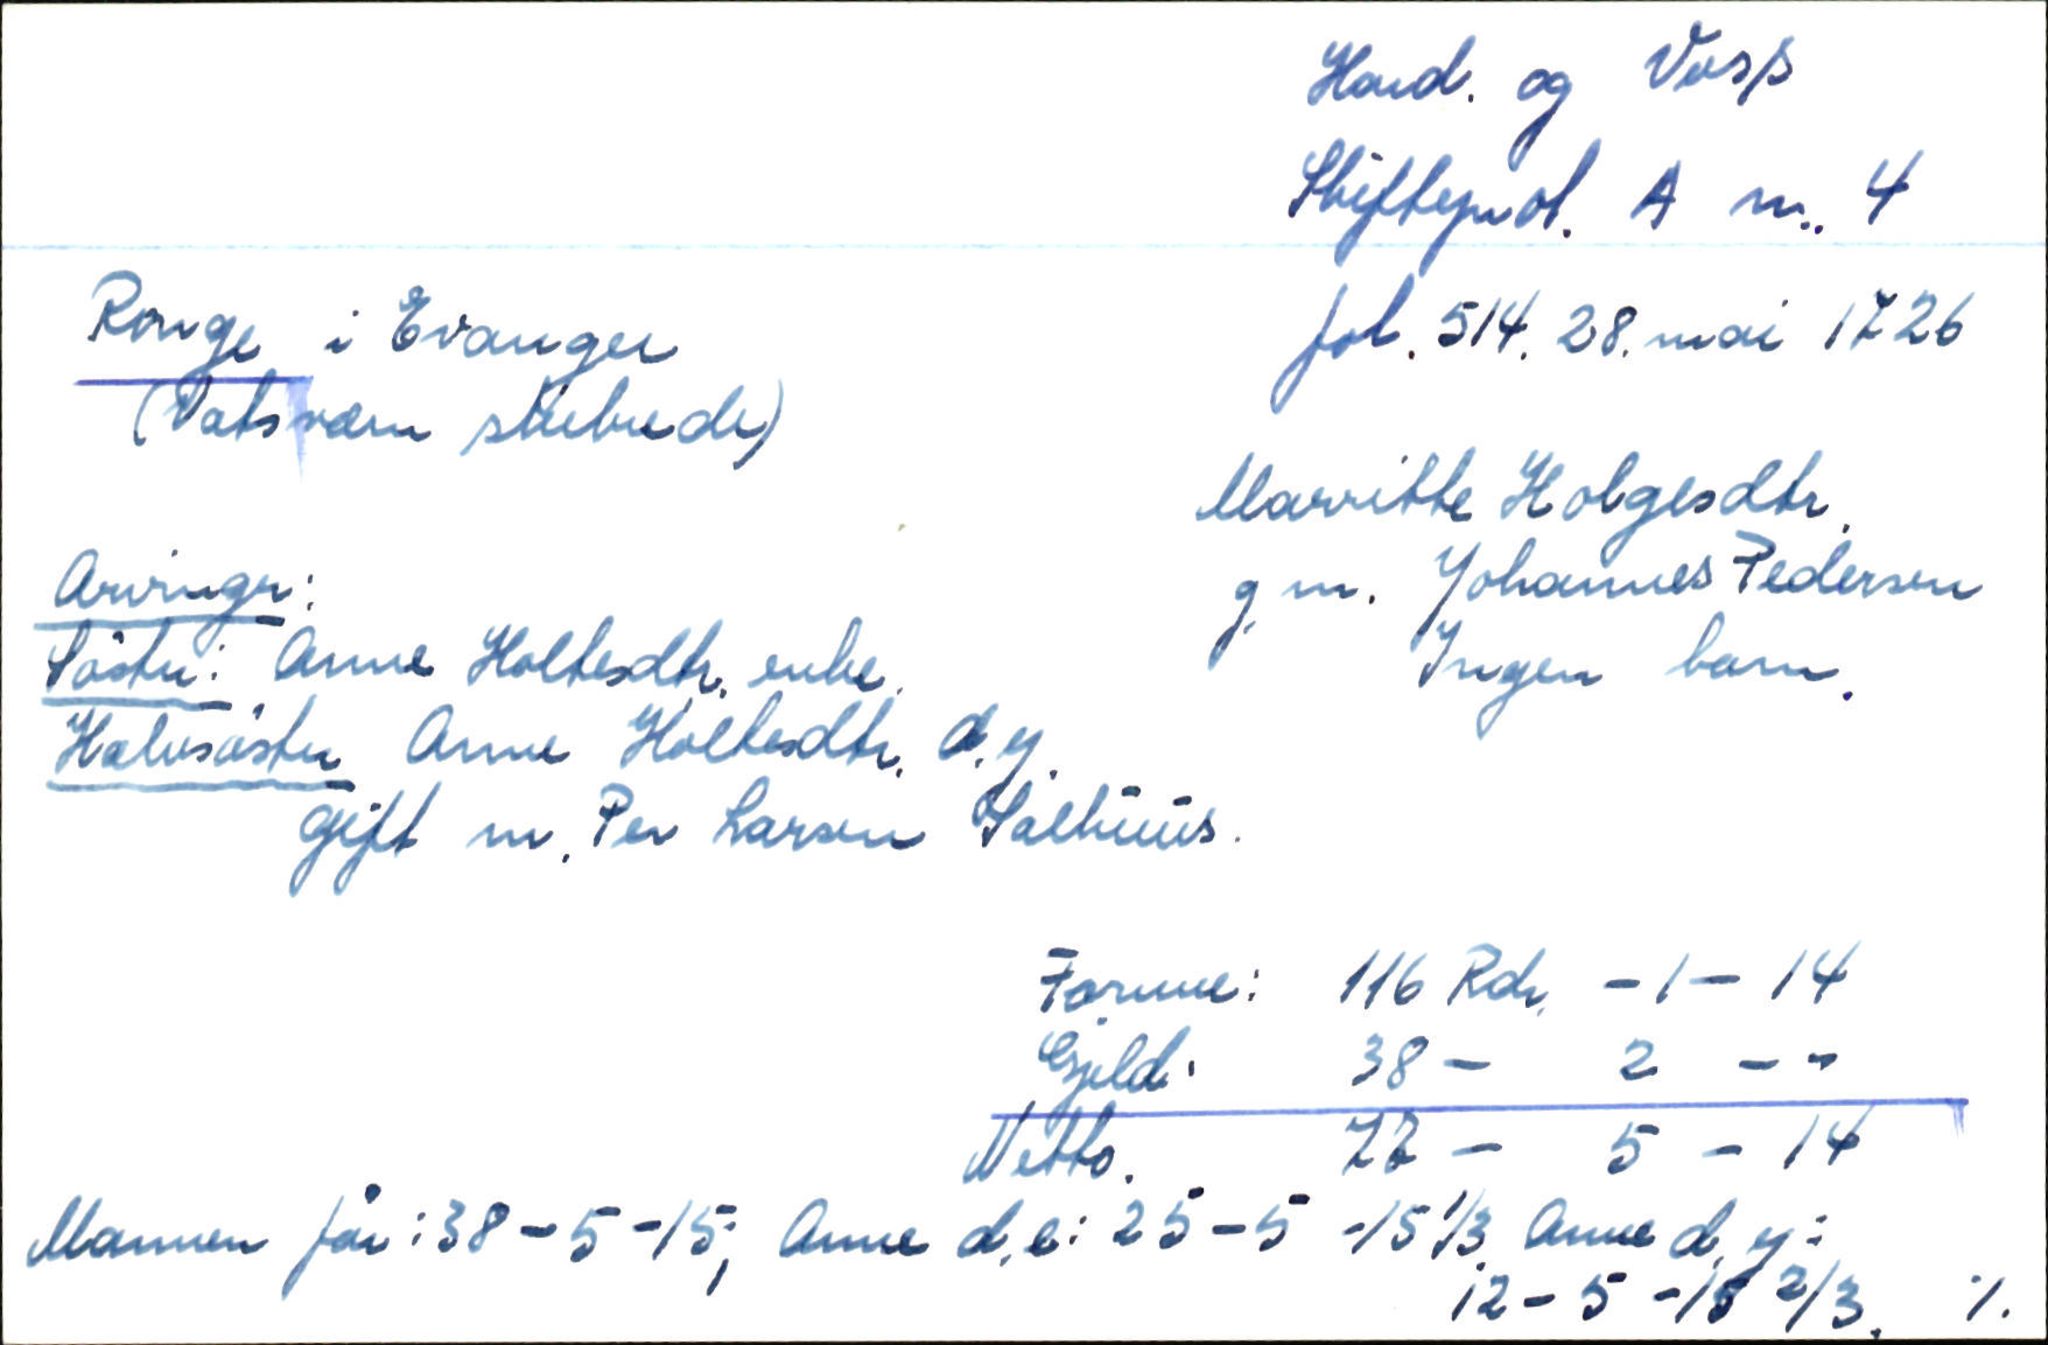 Hard. og Voss
Skifteprot. A nr. 4
Ronge i Evanger
fol. 514. 28. mai 1726
(Vatsværn skibrede)
Marritte Holgesdtr.
g. m. Johannes Pedersen
Ingen barn.
Arvinger:
Söster: Anne Holtesdtr. enke.
Halvsöster Anne Holtesdtr. d.y.
gift m. Per Larsen Salhuus.
Formue: 116 Rdr. - 1 - 14
Gjeld: 38 - 2 - -
Netto. 77 - 5 - 14
Mannen får: 38 - 5 - 15; Anne d.e: 25 - 5 - 15 1/3 Anne d.y:
12 - 5 - 15 2/3. ./.